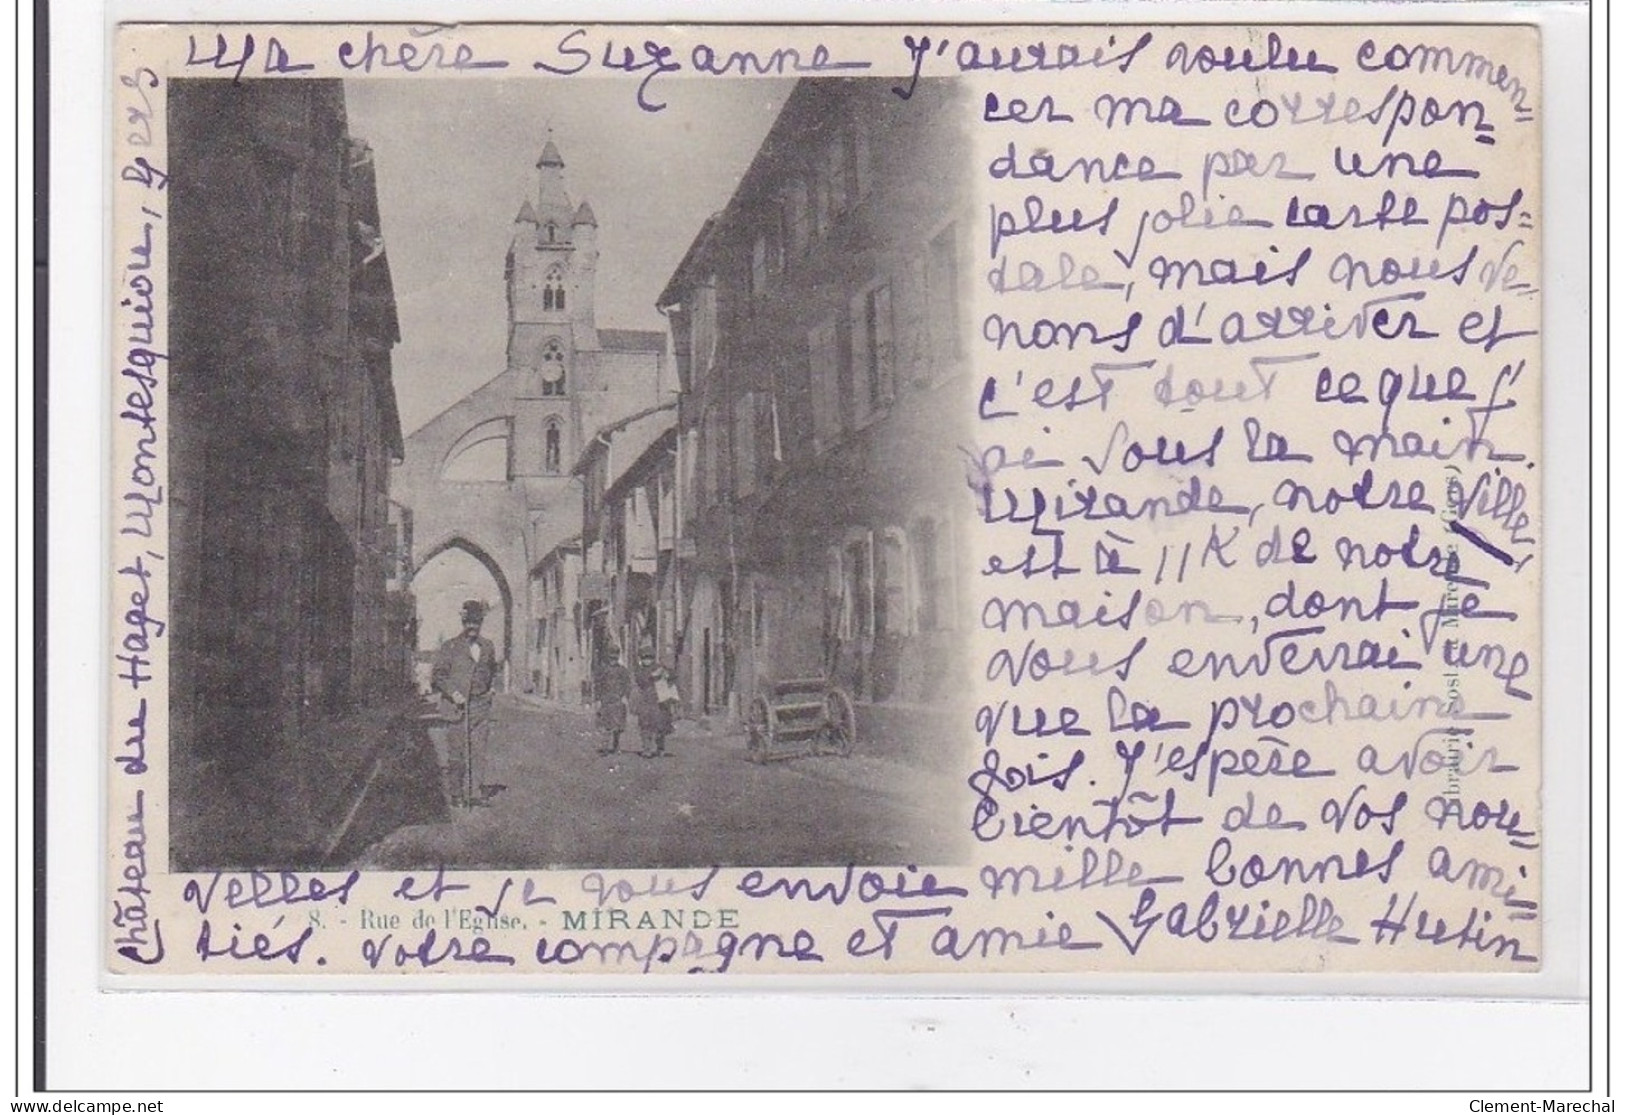 Ma chère Suzanne J'aurais voulu commen-
cer ma correspon-
dance par une
plus jolie carte pos-
tale, mais nous ve-
nons d'arriver et
c'est tout ce que j'
ai sous la main.
Mirande, notre ville,
est à 11 K de notre
maison, dont je
vous enverrai une
vue la prochaine
fois. J'espère avoir
bientôt de vos nou-
velles et je vous envoie mille bonnes ami-
tiés. votre compagne et amie Gabrielle Hutin
Château du Haget, Montesquiou, Gers
8. - Rue de l'Eglise. - MIRANDE
delcampe.net
Clement-Marechal